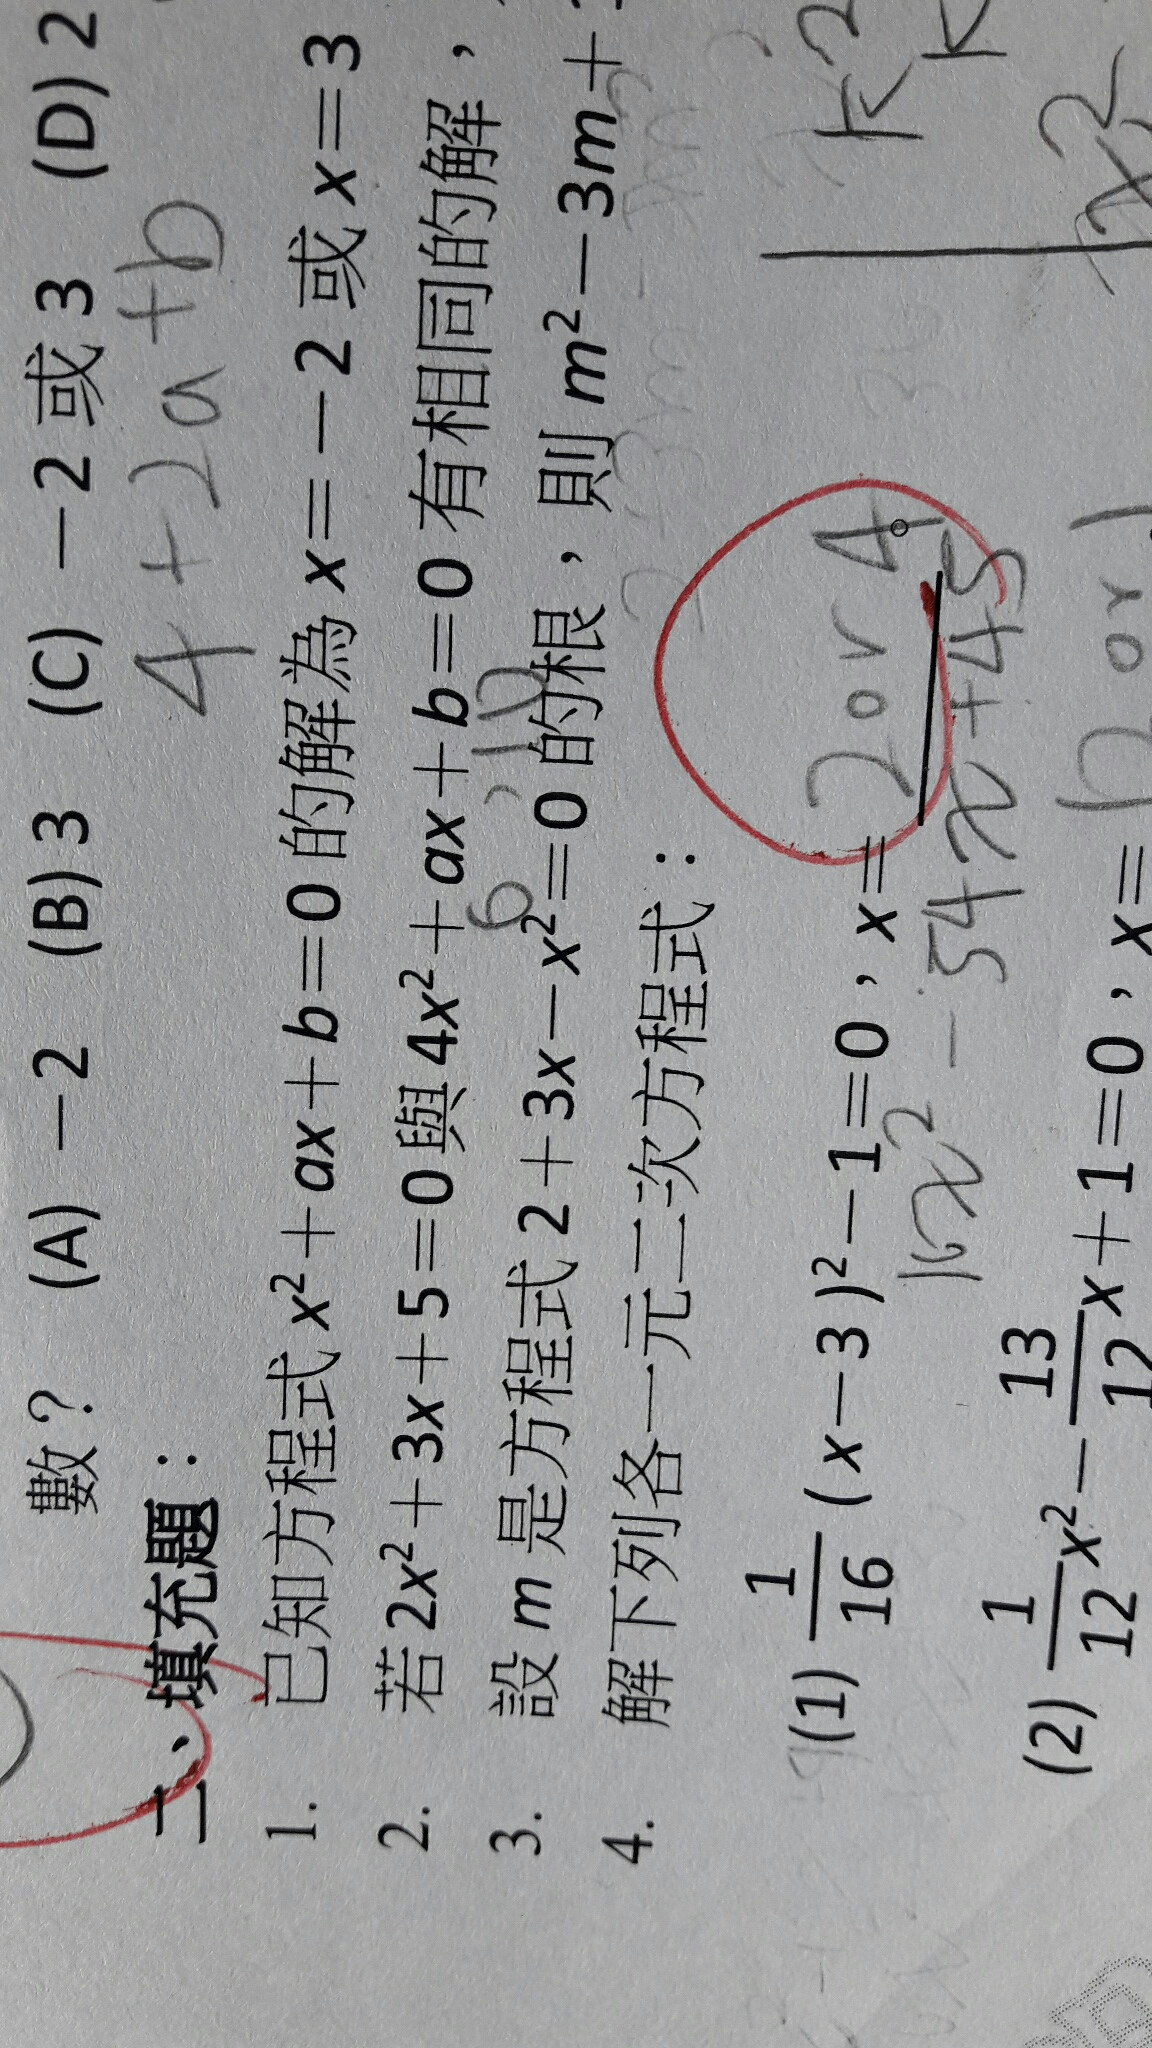 數？ (A) －2 (B) 3 (C) －2 或 3 (D) 2
4 + 2a + b
二、填充題：
1. 已知方程式 x²＋ax＋b＝0 的解為 x＝－2 或 x＝3
2. 若 2x²＋3x＋5＝0 與 4x²＋ax＋b＝0 有相同的解，
6 , 10
3. 設 m 是方程式 2＋3x－x²＝0 的根，則 m²－3m＋
4. 解下列各一元二次方程式：
(1) 1/16 (x－3)²－1＝0，x＝ 2 or 4
x² - 54x + 45
(2) 1/12 x²－13/12 x＋1＝0，x＝ 12 or 1
k²
x²